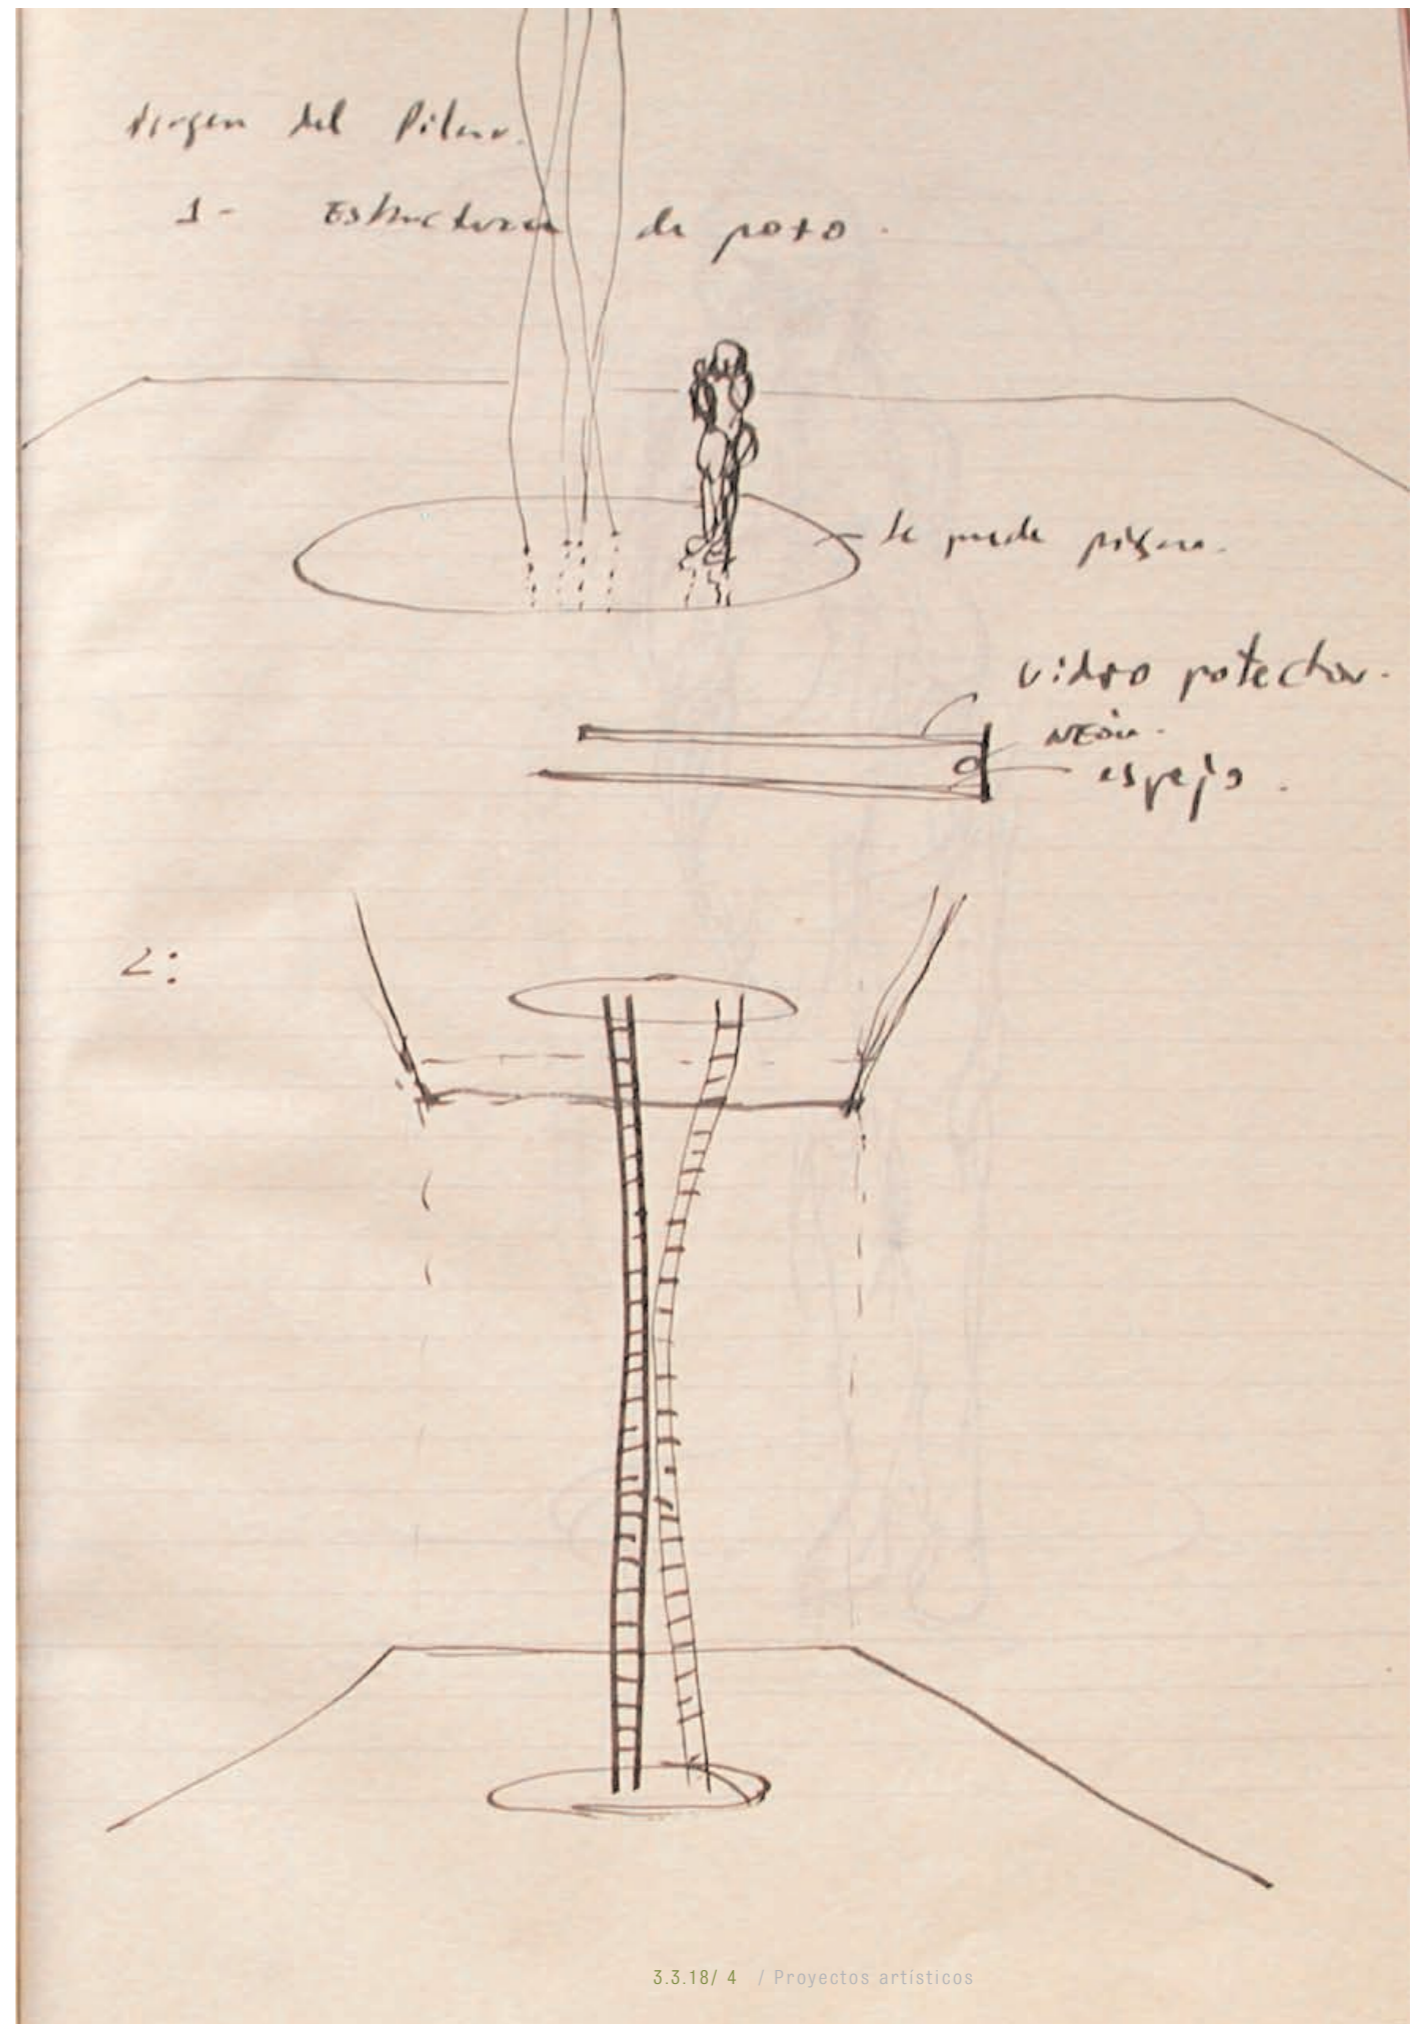 Virgen del Pilar.
1- Estructura de pozo.
se puede pisar.
vidrio protector.
NEÓN.
espejo.
2:
3.3.18/ 4 / Proyectos artísticos